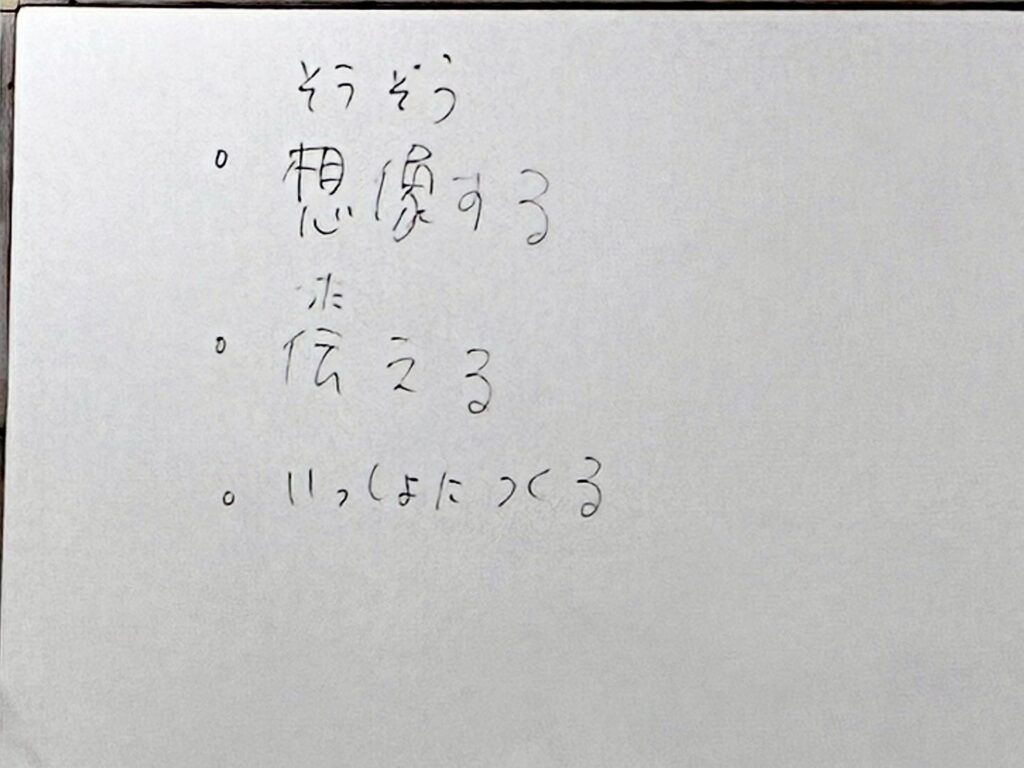 そうぞう
。想像する
つた
。伝える
。いっしょにつくる